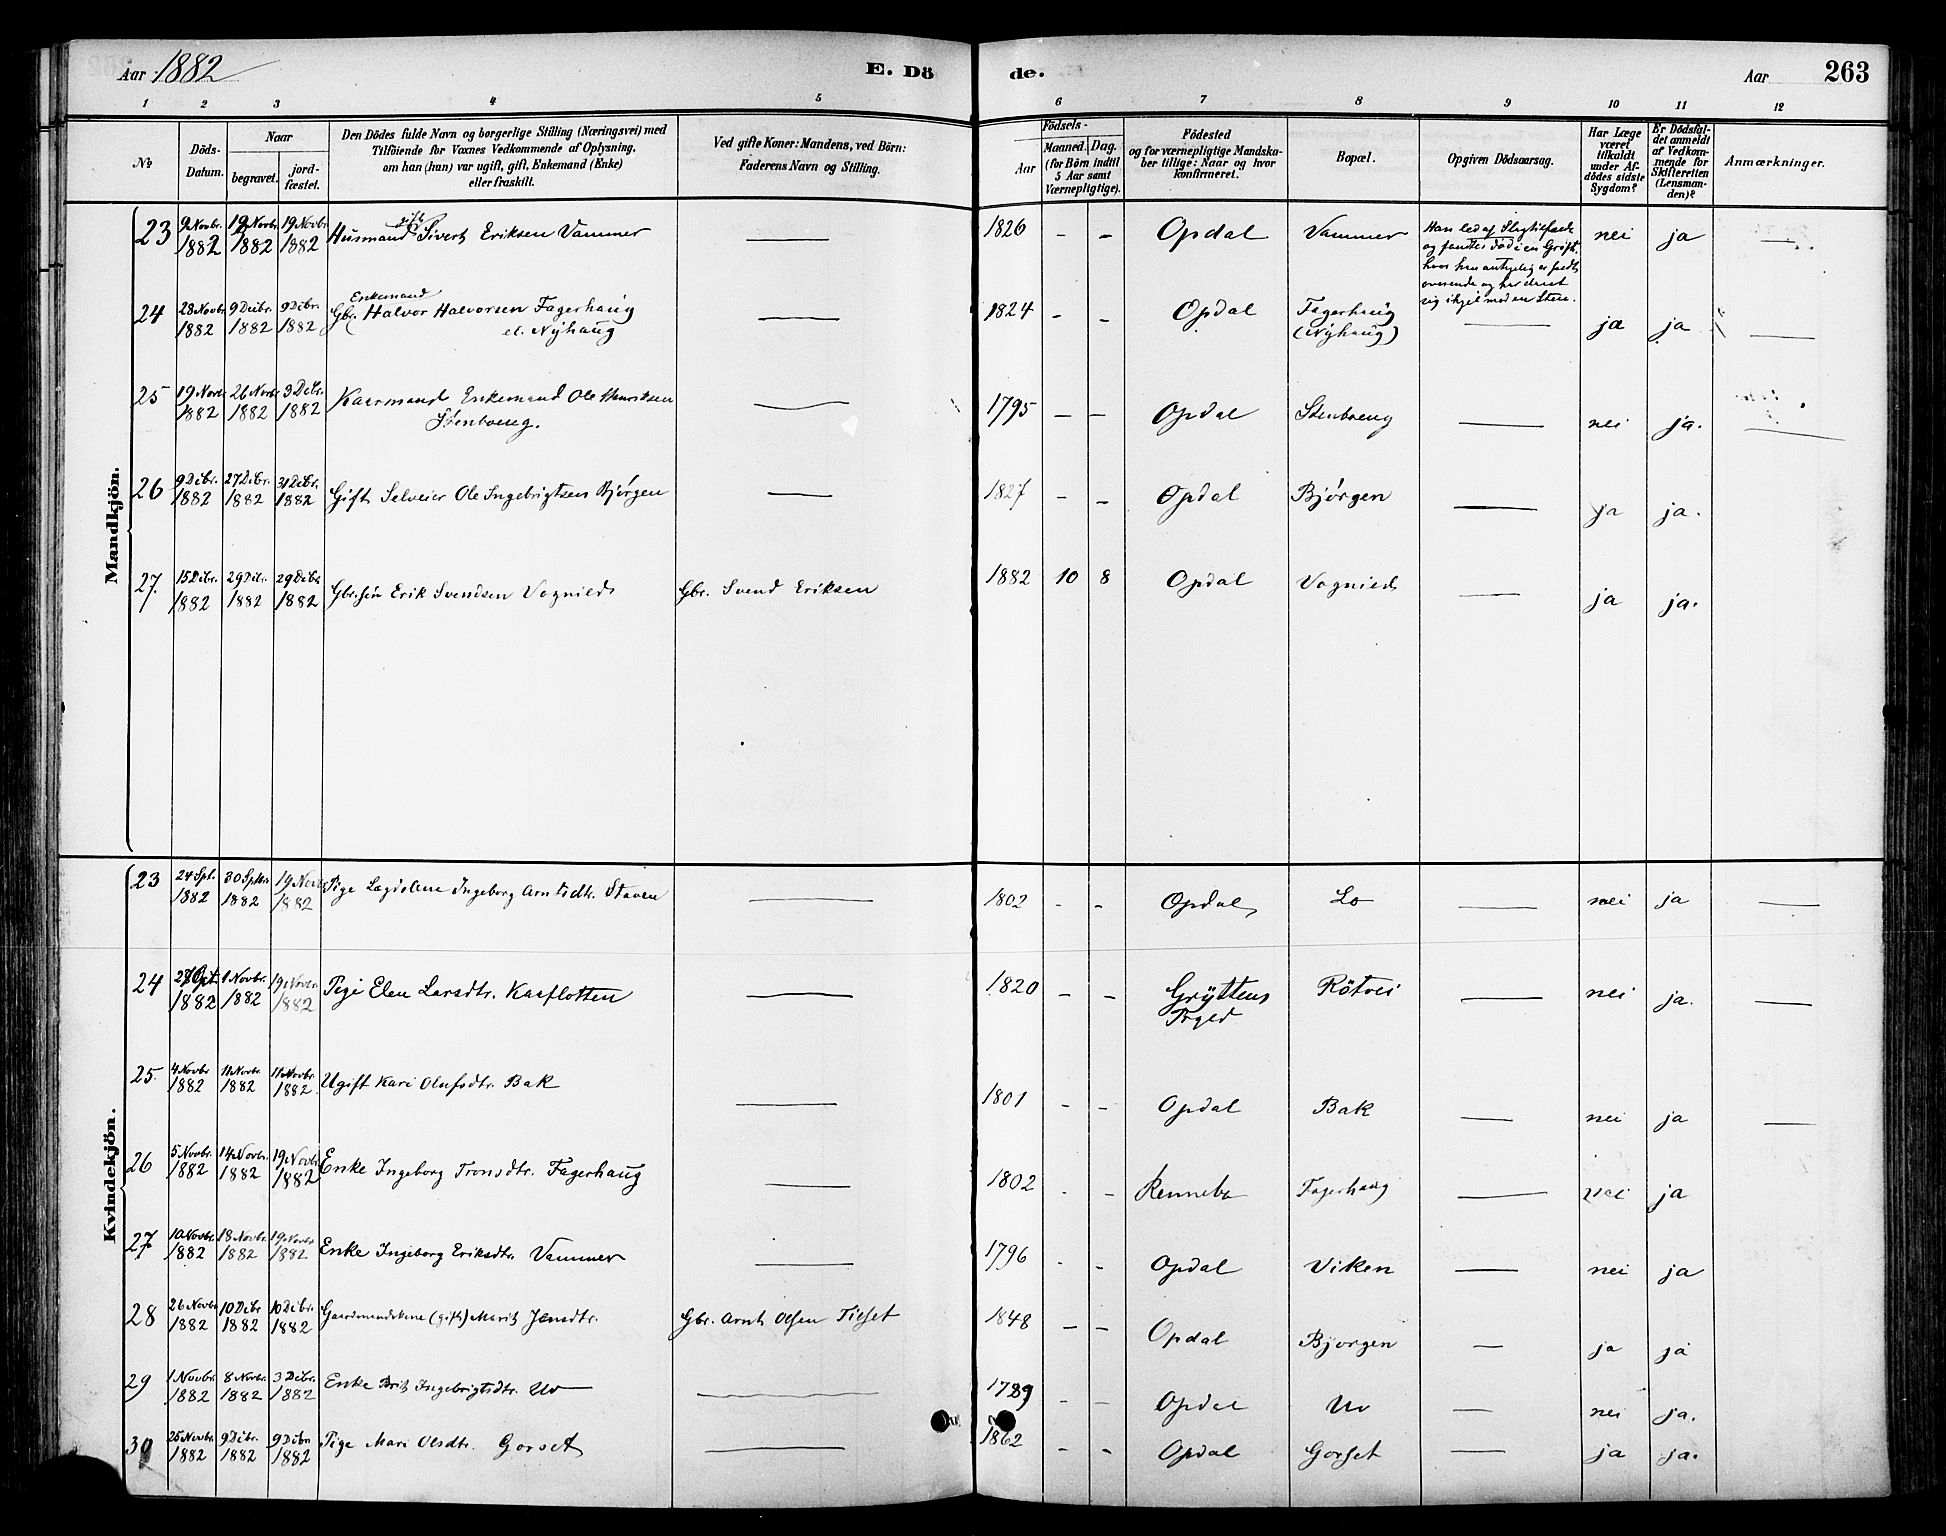 Aar: 1882 E. Dö de. Aar 263
1 2 3 4 5 6 7 8 9 10 11 12
No
Döds-
Datum.
Naar
begravet.
jord-
fæstet.
Den Dödes fulde Navn og borgerlige Stilling (Næringsvei) med
Tilföiende for Voxnes Vedkommende af Oplysning,
om han (hun) var ugift, gift, Enkemand (Enke)
eller fraskilt.
Ved gifte Koner: Mandens, ved Börn:
Faderens Navn og Stilling.
Födsels-
Aar
Maaned.
Dag.
(for Börn indtil
5 Aar samt
Værnepligtige).
Födested
og for værnepligtige Mandska-
ber tillige: Naar og hvor
konfirmeret.
Bopæl.
Opgiven Dödsaarsag.
Har Læge
været
tilkaldt
under Af-
dödes sidste
Sygdom?
Er Dödsfal-
det anmeldt
af Vedkom-
mende for
Skifteretten
(Lensman-
den)?
Anmærkninger.
Mandkjön.
23 9 Novbr. 1882 19 Novbr 1882 19 Novbr 1882 Husmand gift Sivert Eriksen Vammer — 1826 - - Opdal Vammer nei ja —
Han led af Slagtilfælde
og fandtes död i en Gröft,
hvor han antagelig er faldt
overende og har
sig ihjel mod en Sten.
24 28 Novbr 1882 9 Debr. 1882 9 Debr. 1882 Enkemand
Gbr. Halvor Halvorsen Fagerhaug
el. Nyhaug — 1824 - - Opdal Fagerhaug
(Nyhaug) — ja ja —
25 19 Novbr 1882 26 Novbr 1882 3 Debr. 1882 Kaarmand Enkemand Ole Henriksen
Stenboeng. — 1795 - - Opdal Stenboeng — nei ja. —
26 9 Debr. 1882 27 Debr. 1882 31 Debr. 1882 Gift Selveier Ole Ingebrigtsen Bjørgen — 1827 - - Opdal Bjørgen — ja ja.
27. 15 Debr. 1882 29 Debr. 1882 29 Debr 1882 Gbr.sön Erik Svendsen Vognild Gbr. Svend Eriksen 1882 10 8 Opdal Vognild — ja ja.
Kvindekjön.
23 24 Spt. 1882 30 Sptbr 1882 19 Novbr 1882 Pige Ingeborg Arntsdtr. Staven — 1802 - - Opdal Lo — nei ja —
24 1882 1 Novbr. 1882 19 Novbr 1882 Pige Elen Larsdtr. Kasflotten — 1820 - - Gryttens
Prgld Rötvei — nei ja. —
25. 4 Novbr 1882 11 Novbr. 1882 11 Novbr. 1882 Ugift Kari Olufsdtr. Bak — 1801 - - Opdal Bak — nei ja —
26 5 Novbr. 1882 14 Novbr. 1882 19 Novbr 1882 Enke Ingeborg Tronsdtr. Fagerhaug — 1802 - - Rennebo Fagerhaug — nei ja
27 10 Novbr. 1882 18 Novbr. 1882 19 Novbr 1882 Enke Ingeborg Eriksdtr. Vammer — 1796 - - Opdal Viken — nei ja
28 26 Novbr 1882 10 Debr 1882 10 Debr. 1882 Gaardmandskone (gift) Marit Jensdtr. Gbr. Arnt Olsen Tieset 1848 - - Opdal Bjorgen — ja ja
29 1 Novbr. 1882 8 Novbr. 1882 3 Debr. 1882 Enke Brit Ingebrigtsdtr. Uv — 1789 - - Opdal Uv — nei ja.
30 25 Novbr. 1882 9 Debr. 1882 9 Debr 1882 Pige Mari Olsdtr. Gorset — 1862 - - Opdal Gorset — ja ja.